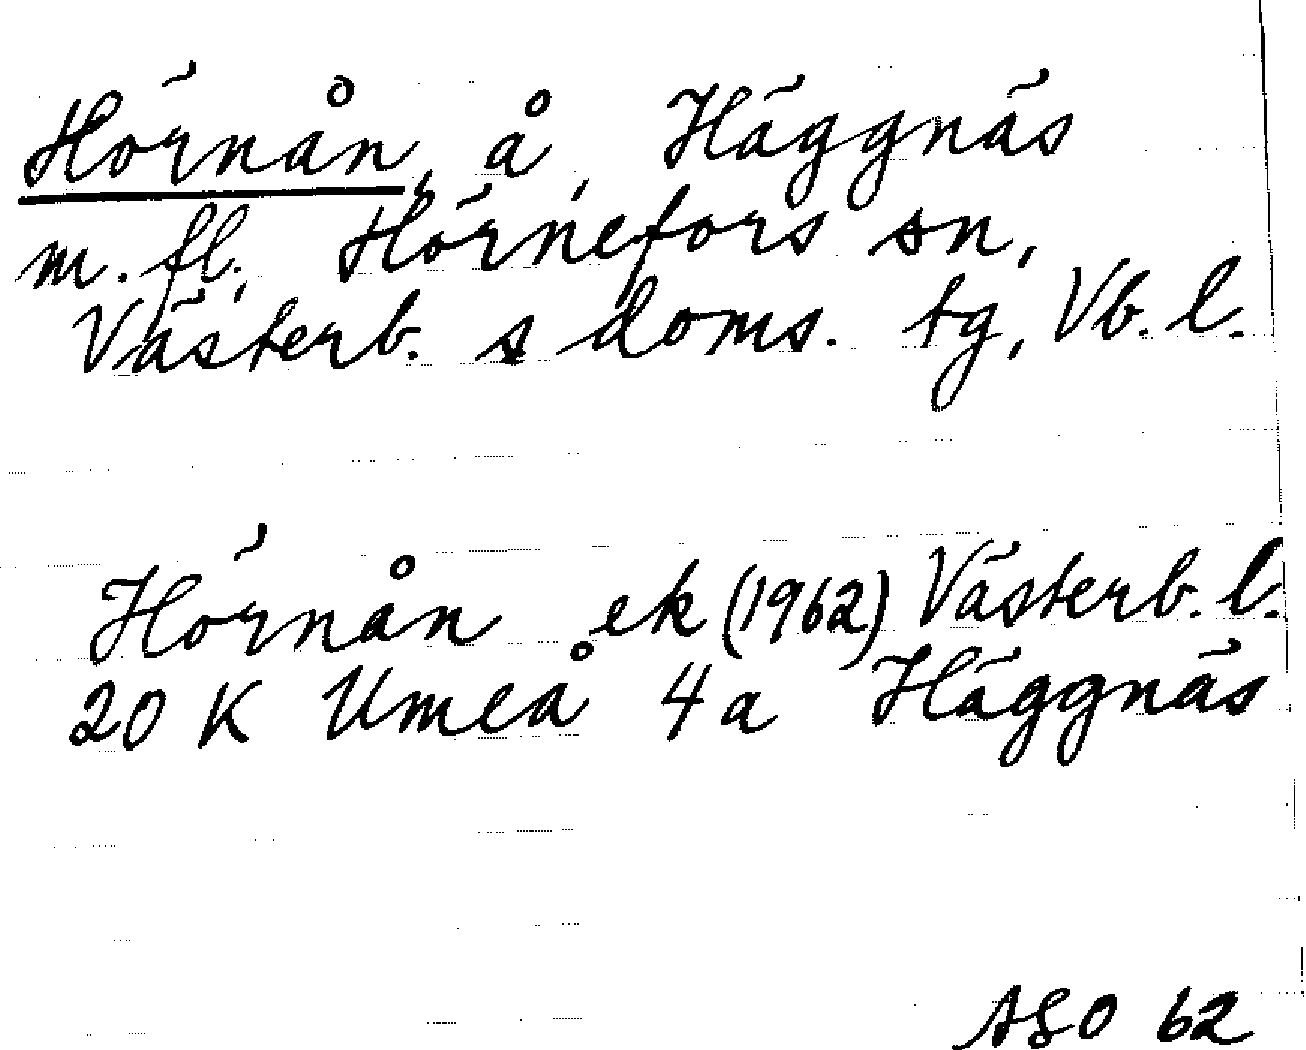 Hörnån, å, Häggnäs
m. fl., Hörnefors sn,
Västerb. s doms. tg, Vb. l.
Hörnån ek (1962) Västerb. l.
20 K Umeå 4a Häggnäs
ASO 62